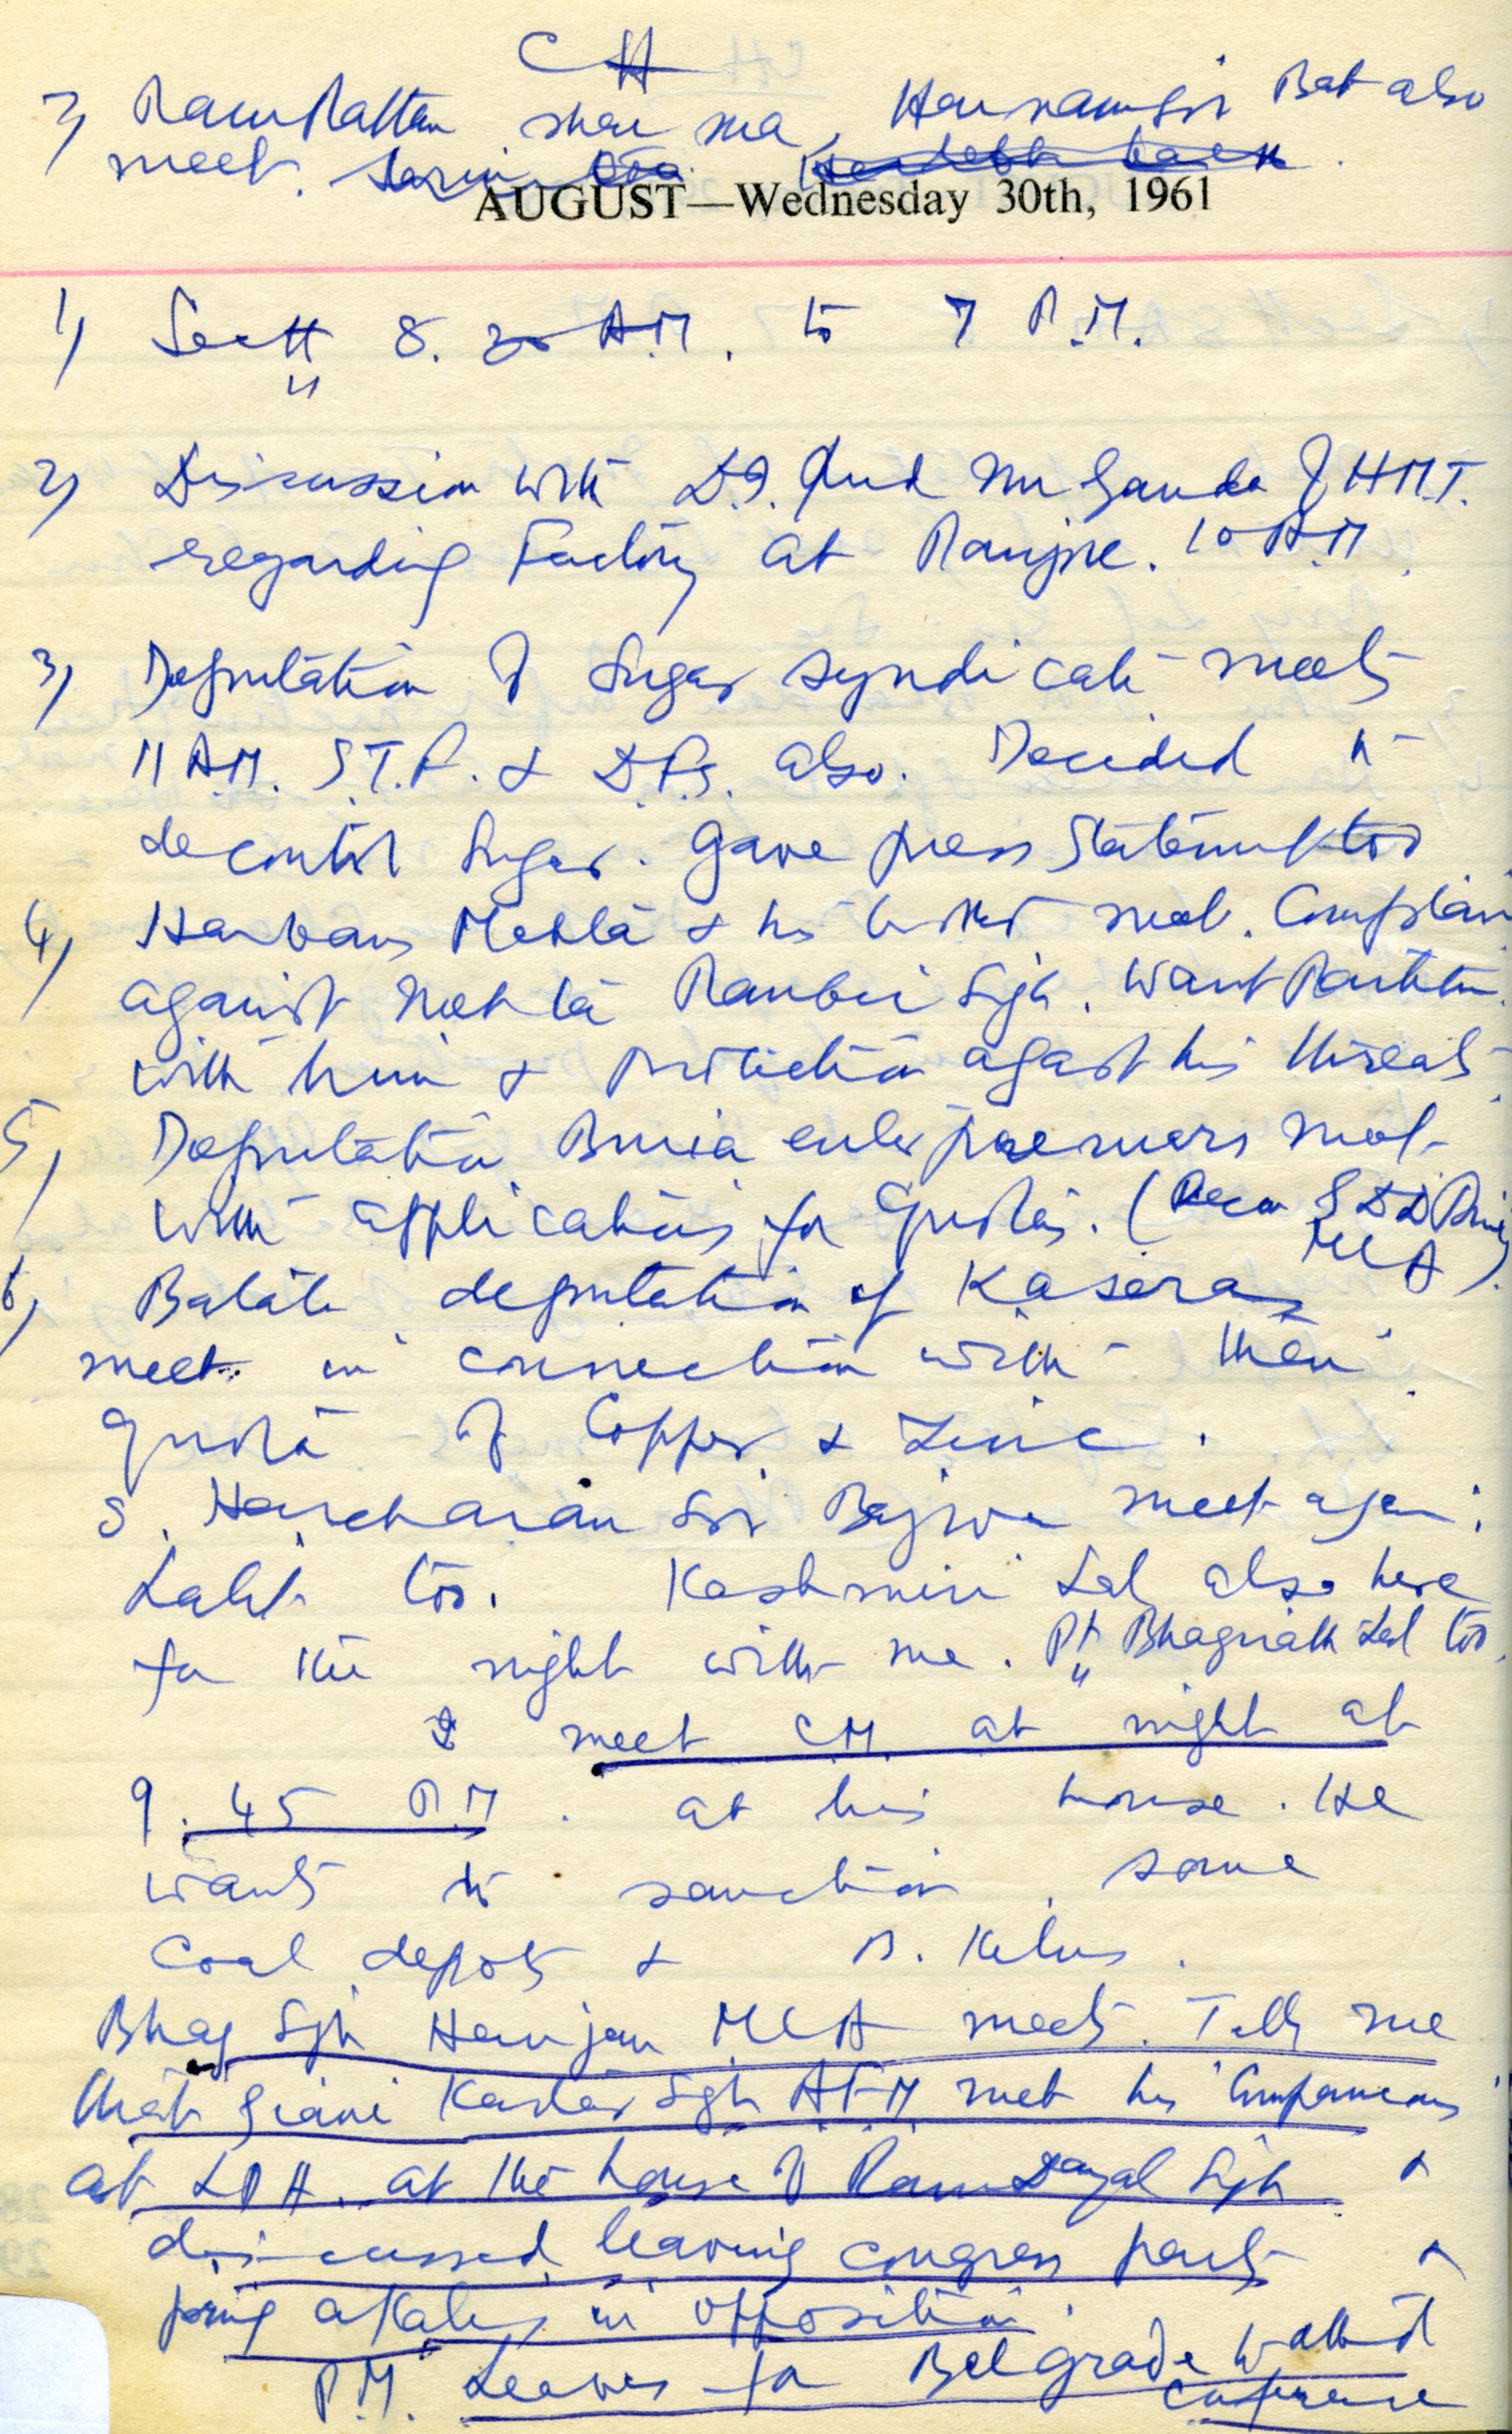 CH
7) Ram Rattan Sharma, Harnam Sir Bat also
meet.
AUGUST—Wednesday 30th, 1961
1) Sectt 8.30 A.M. to 7 P.M.
2) Discussion with D.I. and Mr Ganda of H.M.T.
regarding Factory at Panjore. 10 A.M.
3) Deputation of Sugar Syndicate meets
11 A.M. S.T.P. & D.F.S. also. Decided to
decontrol Sugar. Gave press Statement too
4) Harbans Mehta & his brother meet. Complain
against Mehta Ranbir Sgh. Want Partition
with him & protection agast his threats
5) Deputation enterpreneurs meet
with applications for Quotas. ( MLA).
6) Batala deputation of Kaseras
meet in connection with their
Quota of Copper & Zinc.
S. Harcharan Sir Bajwa meet again;
Lalit too. Kashmiri Lal also here
for the night with me. Pt. Bhagirath Lal too.
I meet C.M. at night at
9.45 P.M. at his house. He
wants to sanction some
Coal depots & B. Kilns.
Bhag Sgh Harijan MLA meets. Tells me
that Giani Kartar Sgh AFM met his Companions
at LDH. at the house of Ram Dayal Sgh &
discussed leaving congress party &
joing akalis in opposition.
P.M. Leaves for Belgrade
Conference